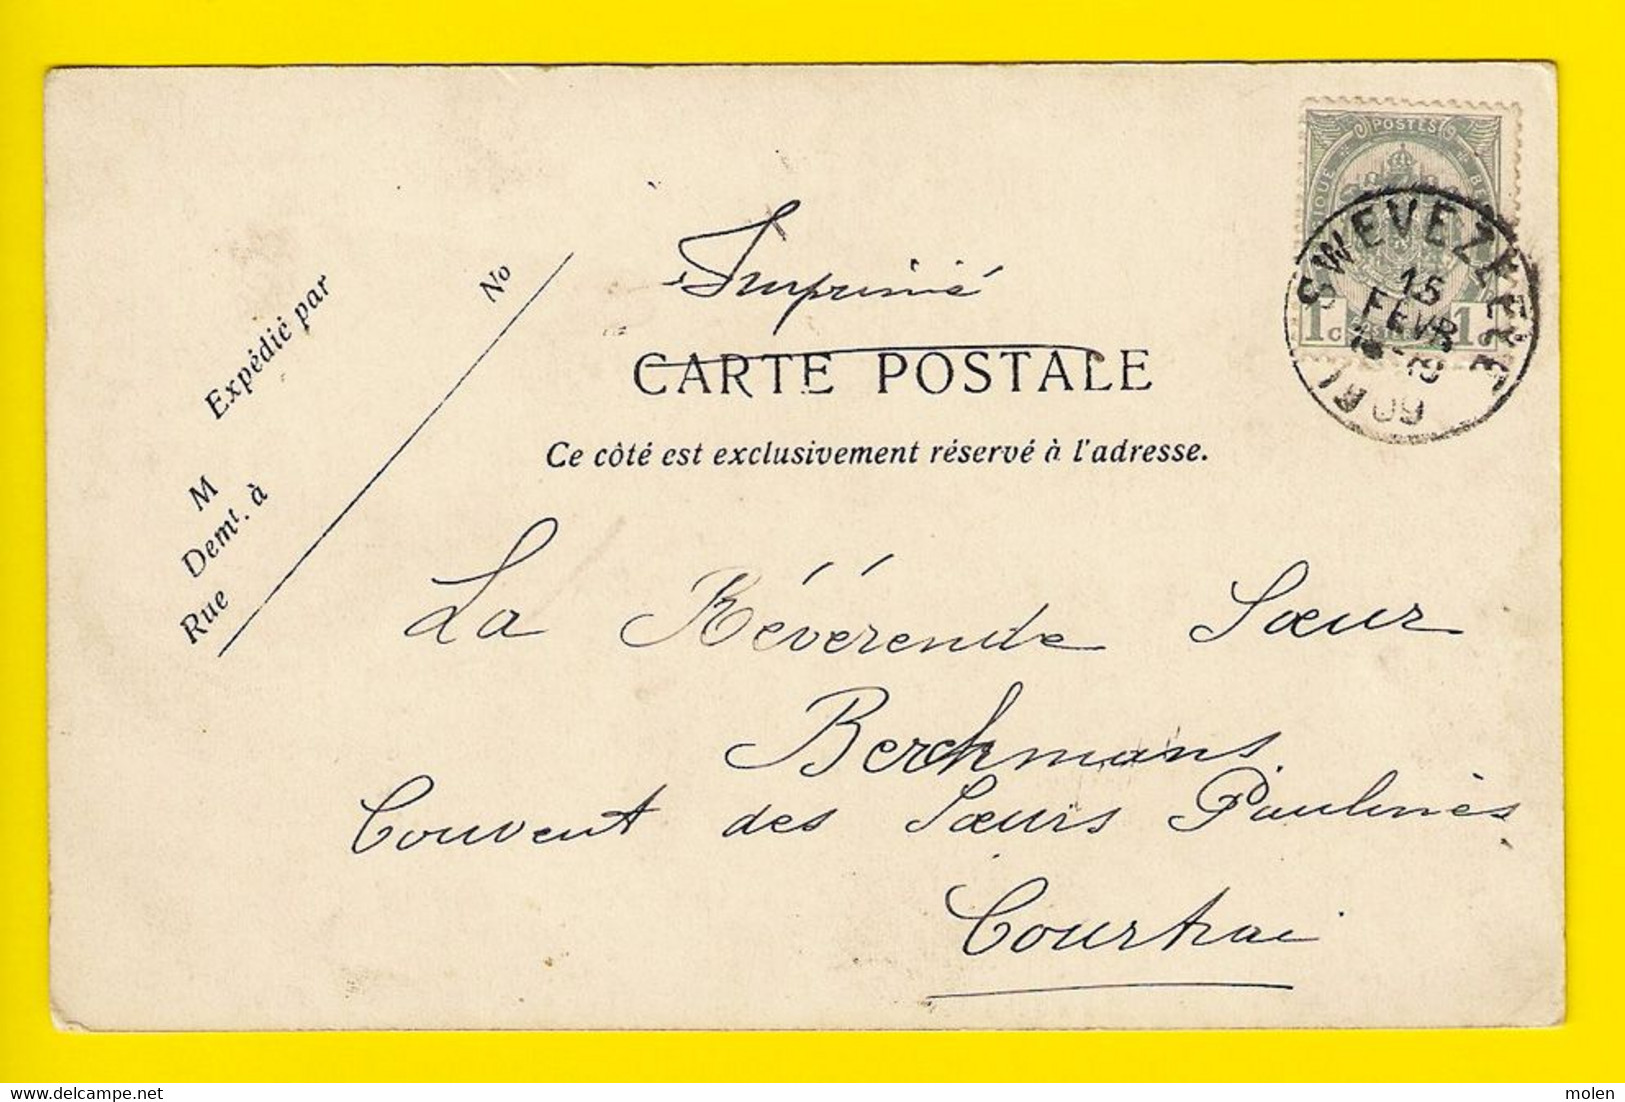 POSTES
SWEVEZEELE
15
FEVR
1909
1c 1c
Imprimé
CARTE POSTALE
Ce côté est exclusivement réservé à l'adresse.
Expédié par
No
M
Demt. à
Rue
La Révérende Sœur
Berchmans
Couvent des Sœurs Paulines
Courtrai
Collect-Online.com
molen